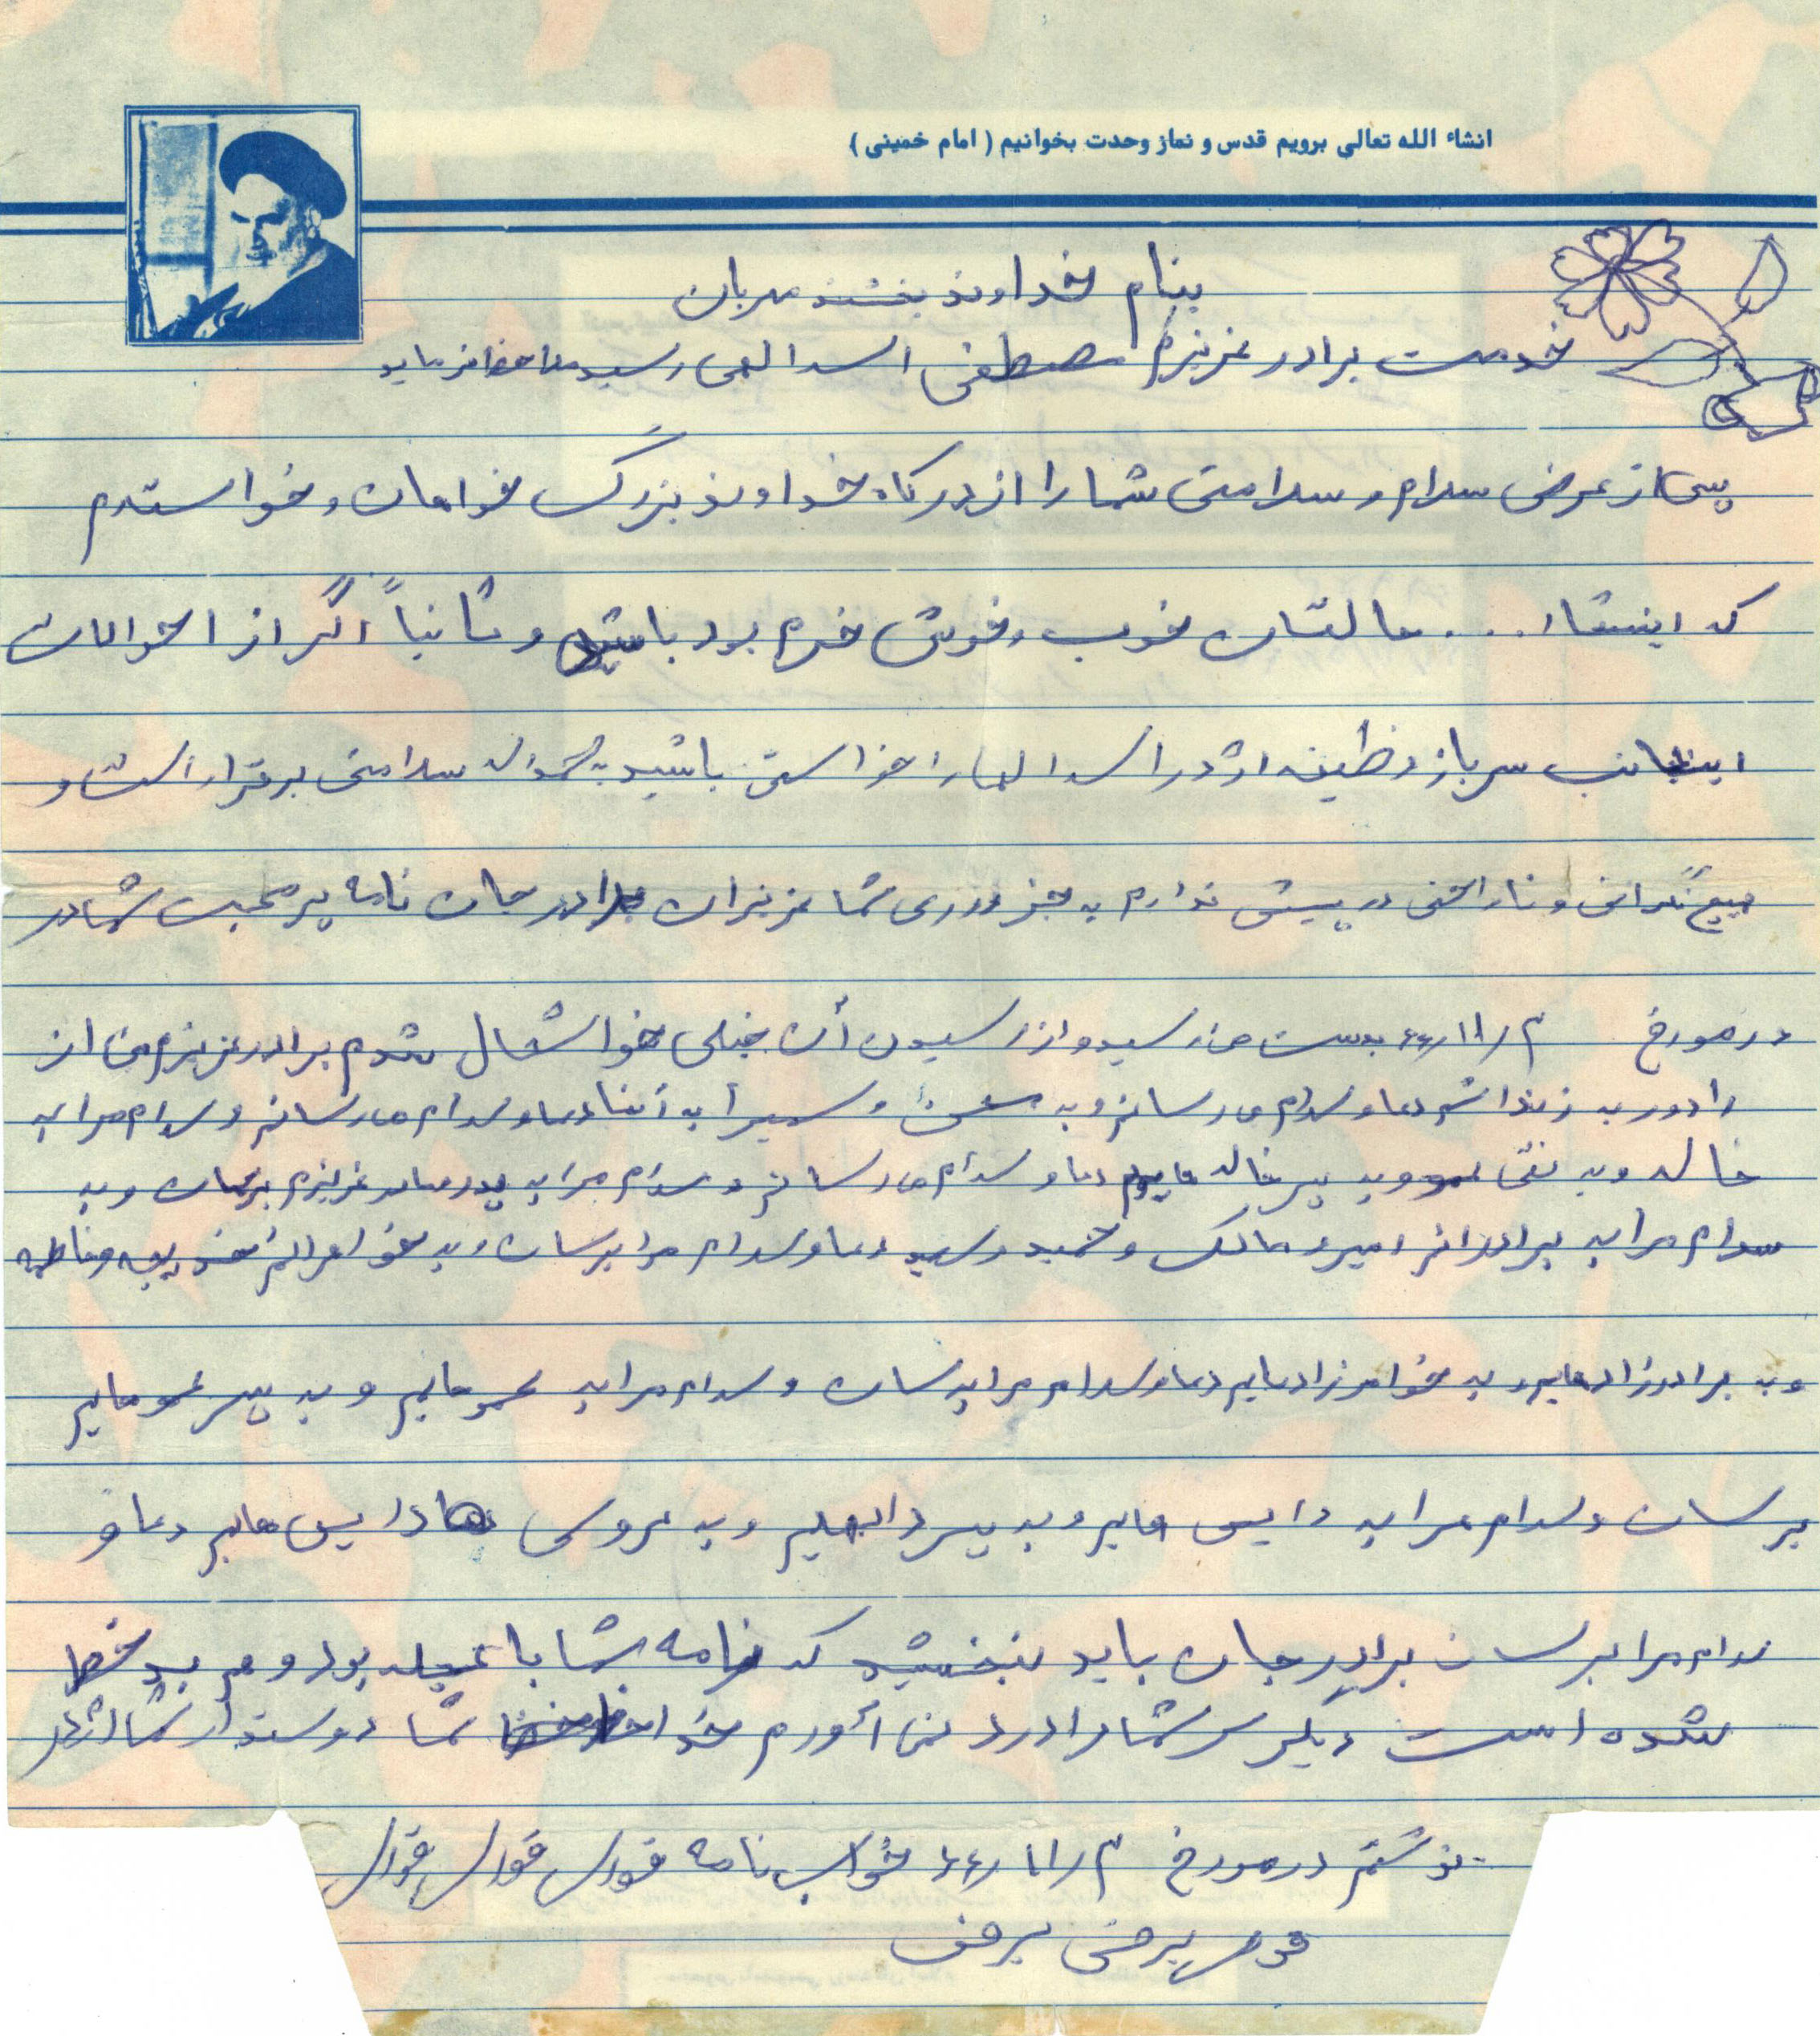 انشاء الله تعالی برویم قدس و نماز وحدت بخوانیم ( امام خمینی )
بنام خداوند بخشنده مهربان
خدمت برادر عزیزم مصطفی اسدالهی رسیده ملاحظه فرماید
پس از عرض سلام و سلامتی شما را از درگاه خداوند بزرگ خواهان و خواستارم
که اینشاا... حالتان خوب و خوش خرم بود باشید و ثانیاً اگر از احوالات
اینجانب سرباز وظیفه اسدالها را خواستی باشید به احمداله سلامتی برقرار است و
هیچ نگرانی و ناراحتی در پیش ندارم به جز دوری شما عزیزان برادر جان نامه پر محبت شما در
در مورخ ۶۴/۱۱/۳ بدست من رسید و از رسیدن آن خیلی خواشحال شدم برادر عزیزم من از
را دور به زنداشم دعا و سلام می رسانم و به و به آنها دعا و سلام می رسانم و سلام مرا به
خاله و به نقی و به پسر خاله هایم دعا و سلام می رسانم و سلام مرا به پدر مادر عزیزم برسان و به
سلام مرا به برادرانم امیر و مالک و حمید و سعید دعا و سلام مرا برسان و به خواهرانم خدیجه و فاطمه
و به برادرزاد هایم و به خواهرزادهایم دعا و سلام مرا برسان و سلام مرا به عموهایم و به پسر عموهایم
برسان و سلام مرا به دایی هایم و به پسر دایهایم و به عروسی دایی هایم دعا و
سلام مرا برسان برادر جان باید ببخشید که نامه شما با عجله بود و هم بد خط
شده است دیگر سر شما را درد نمی آورم خدا حافظ شما دوستدار شما
نوشتم در مورخ ۶۴/۱۱/۳ جواب نامه فوری فوری فوری
فوری برفی برفی